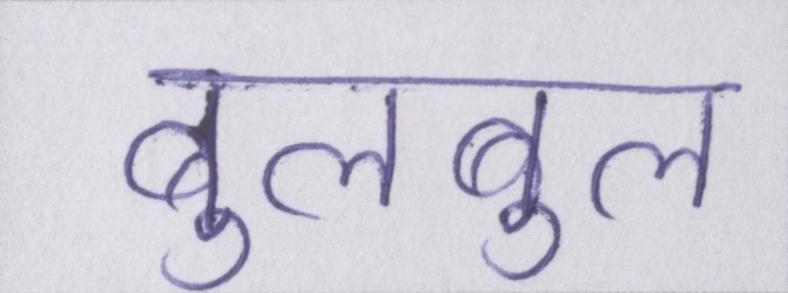 बुलबुल